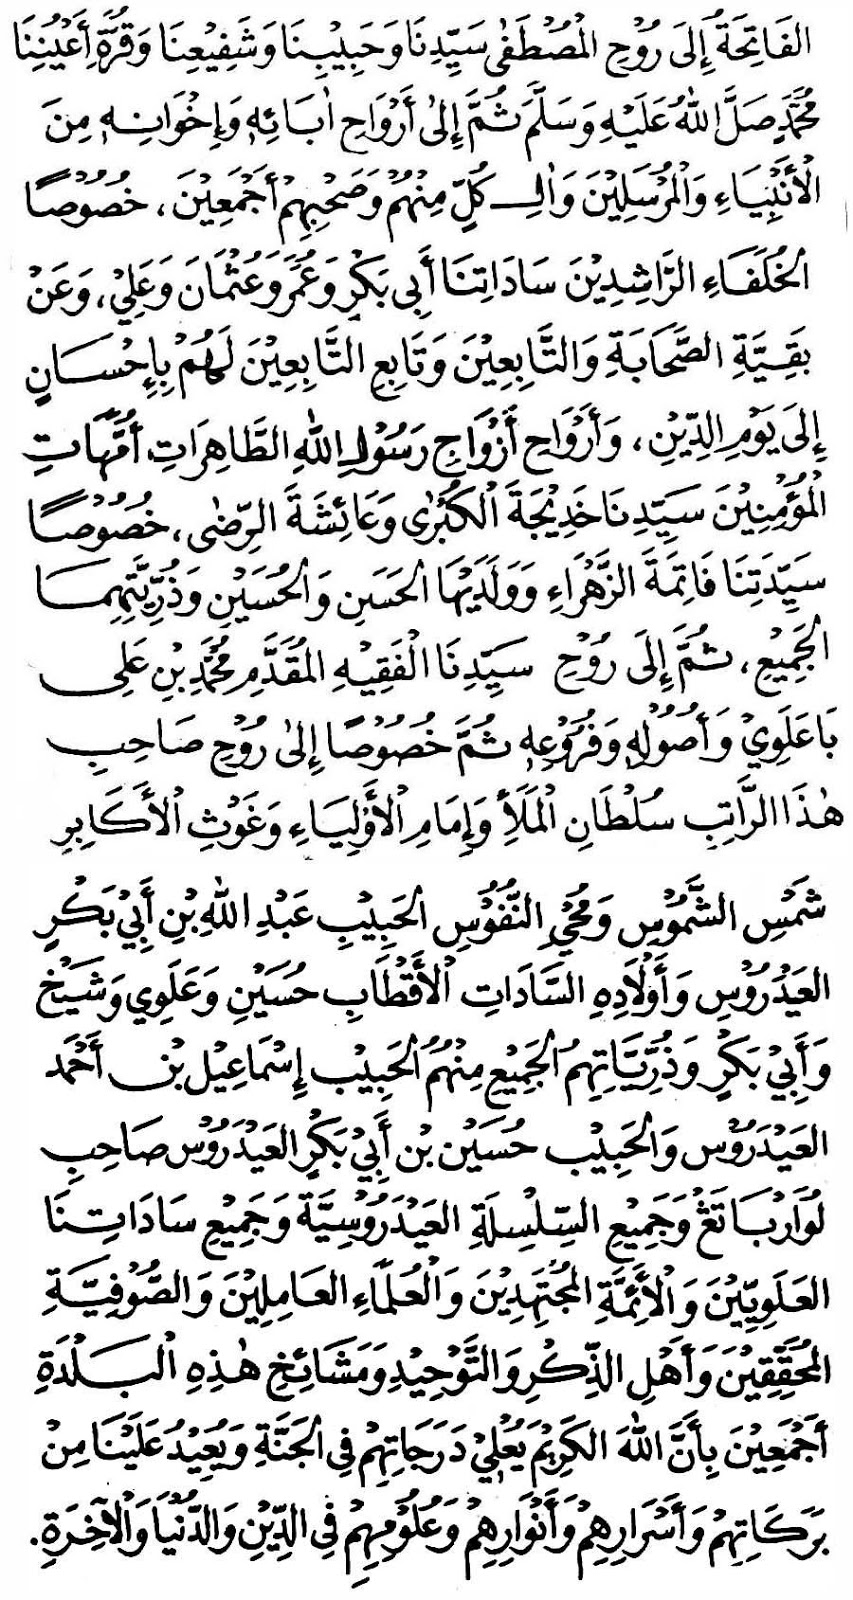 الفَاتِحَةُ إِلَى رُوْحِ الْمُصْطَفٰى سَيِّدِنَا وَحَبِيْبِنَا وَشَفِيْعِنَا وَقُرَّةِ أَعْيُنِنَا
مُحَمَّدٍ صَلَّ اللهُ عَلَيْهِ وَسَلَّمَ ثُمَّ إِلىٰ أَرْوَاحِ اٰبَائِهِ وَإِخْوَانِهِ مِنَ
الْأَنْبِيَاءِ وَالْمُرْسَلِيْنَ وَاٰلِ كُلٍّ مِنْهُمْ وَصَحْبِهِمْ أَجْمَعِيْنَ، خُصُوْصًا
الخُلَفَاءِ الرَّاشِدِيْنَ سَادَاتِنَا أَبِى بَكْرٍ وَعُمَرَ وَعُثْمَانَ وَعَلِيْ، وَعَنْ
بَقِيَّةِ الصَّحَابَةِ وَالتَّابِعِيْنَ وَتَابِعِ التَّابِعِيْنَ لَهُمْ بِإِحْسَانٍ
إِلَى يَوْمِ الدِّيْنِ، وَأَرْوَاحِ أَزْوَاجِ رَسُوْلِ اللهِ الطَّاهِرَاتِ أُمَّهَاتِ
الْمُؤْمِنِيْنَ سَيِّدِنَا خَدِيْجَةَ الْكُبْرٰى وَعَائِشَةَ الرِّضٰى، خُصُوْصًا
سَيِّدَتِنَا فَاتِمَةَ الزَّهْرَاءِ وَوَلَدَيْهَا الحَسَنِ وَالحُسَيْنِ وَذُرِّيَّتِهِمَا
الجَمِيْعِ، ثُمَّ إِلَى رُوْحِ سَيِّدِنَا الْفَقِيْهِ المُقَدَّمِ مُحَمَّدِ بْنِ عَلِى
بَاعَلَوِيْ وَأُصُوْلِهِ وَفُرُوْعِهِ ثُمَّ خُصُوْصًا إِلىٰ رُوْحِ صَاحِبِ
هٰذَا الرَّاتِبِ سُلْطَانِ الْمَلَأِ وَإِمَامِ الْأَوْلِيَاءِ وَغَوْثِ الْأَكَابِرِ
شَمْسِ الشُّمُوْسِ وَمُحْيِ النُّفُوْسِ الحَبِيْبِ عَبْدِ اللهِ بْنِ أَبِيْ بَكْرٍ
العَيْدَرُوْسِ وَأَوْلَادِهِ السَّادَاتِ الْأَقْطَابِ حُسَيْنِ وَعَلَوِي وَشَيْخِ
وَأَبِيْ بَكْرٍ وَذُرِّيَّاتِهِمُ الجَمِيْعِ مِنْهُمُ الحَبِيْب إِسْمَاعِيْل بْن أَحْمَد
العَيْدَرُوْس وَالحَبِيْب حُسَيْن بْن أَبِيْ بَكْرٍ العَيْدَرُوْس صَاحِبِ
لُوَارْبَاتَڠْ وَجَمِيْعِ السِّلْسِلَةِ العَيْدَرُوْسِيَّةِ وَجَمِيْعِ سَادَاتِنَا
العَلَوِيِّيْنَ وَالْأَئِمَّةِ المُجْتَهِدِيْنَ وَالْعُلَمَاءِ العَامِلِيْنَ وَالصُّوْفِيَّةِ
المُحَقِّقِيْنَ وَأَهْلِ الذِّكْرِ وَالتَّوْحِيْدِ وَمَشَائِخِ هٰذِهِ الْبَلْدَةِ
أَجْمَعِيْنَ بِأَنَّ اللهَ الكَرِيْمَ يُعْلِيْ دَرَجَاتِهِمْ فِى الجَنَّةِ وَيُعِيْدُ عَلَيْنَا مِنْ
بَرَكَاتِهِمْ وَأَسْرَارِهِمْ وَأَنْوَارِهِمْ وَعُلُوْمِهِمْ فِى الدِّيْنِ وَالدُّنْيَا وَالْآخِرَةِ.